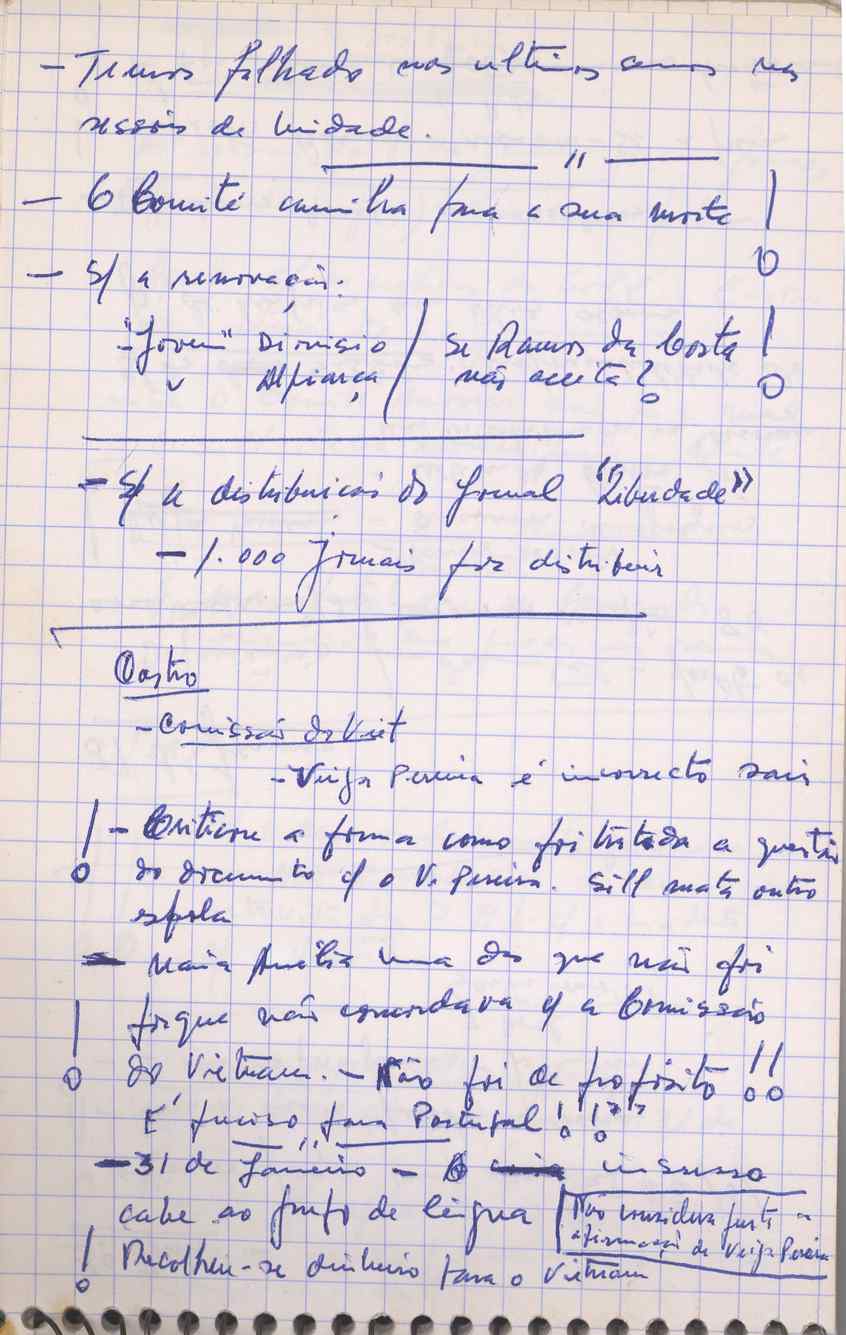 - Temos falhado nos ultimos anos nas
sessões de Unidade.
"
- O Comité caminha para a sua morte !
- S/ a renovação:
- "Jovem" Dionisio / Se Ramos da Costa !
" Alpiarça / não aceita?
- S/ a distribuição do Jornal "Liberdade"
- 1.000 Jornais por distribuir
Castro
- Comissão do Viet
- Veiga Pereira é incorrecto sair
! - Critica a forma como foi tratada a questão
do documento c/ o V. Pereira. outro
- Maria Amélia uma das que não foi
! porque não concordava c/ a Comissão
do Vietnam. - Não foi de propósito !!
É preciso para Portugal !!
- 31 de Janeiro - O
cabe ao grupo de lingua
Não considera justa a
afirmação de Veiga Pereira
! Recolheu-se dinheiro para o Vietnam